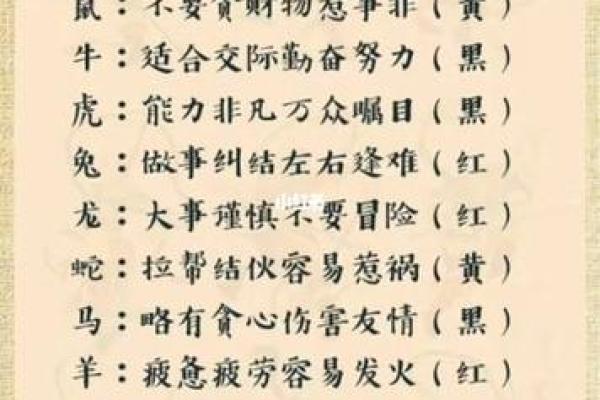 鼠：不要貪财物惹事非（黄）
牛：适合交际勤奋努力（黑）
虎：能力非凡万众瞩目（黑）
兔：做事纠结左右逢难（红）
龙：大事谨慎不要冒险（红）
蛇：拉帮结伙容易惹祸（黄）
马：略有貪心伤害友情（黑）
羊：疲惫疲劳容易发火（红）